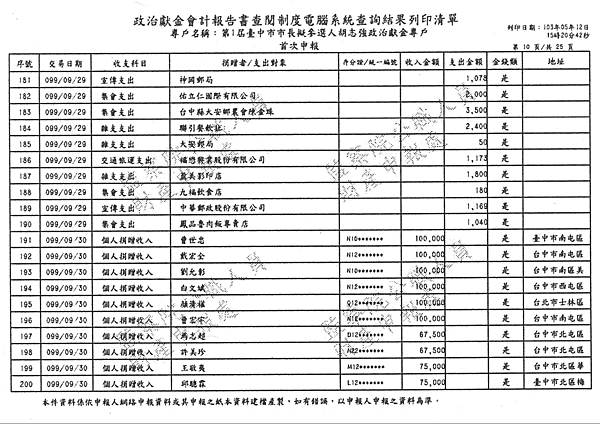 政治獻金會計報告書查閱制度電腦系統查詢結果列印清單
專戶名稱:第1屆臺中市市長擬參選人胡志強政治獻金專戶
首次申報
列印日期:103年05年12日
15時20分42秒
第 10 頁/共 25 頁
序號 交易日期 收支科目 捐贈者/支出對象 身分證/統一編號 收入金額 支出金額 金錢類 地址
181 099/09/29 宣傳支出 神岡郵局 1,078 是
182 099/09/29 集會支出 佑立仁國際有限公司 2,000 是
183 099/09/29 集會支出 台中縣大安鄉農會陳金珠 3,500 是
184 099/09/29 雜支支出 聯引餐飲社 2,400 是
185 099/09/29 雜支支出 大安郵局 50 是
186 099/09/29 交通旅運支出 福懋興業股份有限公司 1,173 是
187 099/09/29 雜支支出 美影印店 1,800 是
188 099/09/29 集會支出 九福飲食店 180 是
189 099/09/29 宣傳支出 中華郵政股份有限公司 1,169 是
190 099/09/29 集會支出 鳳品魯肉飯專賣店 1,040 是
191 099/09/30 個人捐贈收入 曹世忠 N10******* 100,000 是 臺中市南屯區
192 099/09/30 個人捐贈收入 戴宏全 N12******* 100,000 是 台中市南屯區
193 099/09/30 個人捐贈收入 劉允彰 N10******* 100,000 是 台中市南區美
194 099/09/30 個人捐贈收入 白文斌 N12******* 100,000 是 台中市西屯區
195 099/09/30 個人捐贈收入 顏清權 Q12******* 100,000 是 台北市士林區
196 099/09/30 個人捐贈收入 曹宏宇 N12******* 100,000 是 台中市南屯區
197 099/09/30 個人捐贈收入 馮志超 D12******* 67,500 是 台中市北屯區
198 099/09/30 個人捐贈收入 許美珍 N22******* 67,500 是 台中市北屯區
199 099/09/30 個人捐贈收入 王敬夷 M12******* 75,000 是 台中市北區華
200 099/09/30 個人捐贈收入 邱聰霖 L12******* 75,000 是 臺中市北區梅
本件資料係依申報人網路申報資料或其申報之紙本資料建檔產製。如有錯誤,以申報人申報之資料為準。
監察院公職人員
財產申報處
監察院公職人員
財產申報處